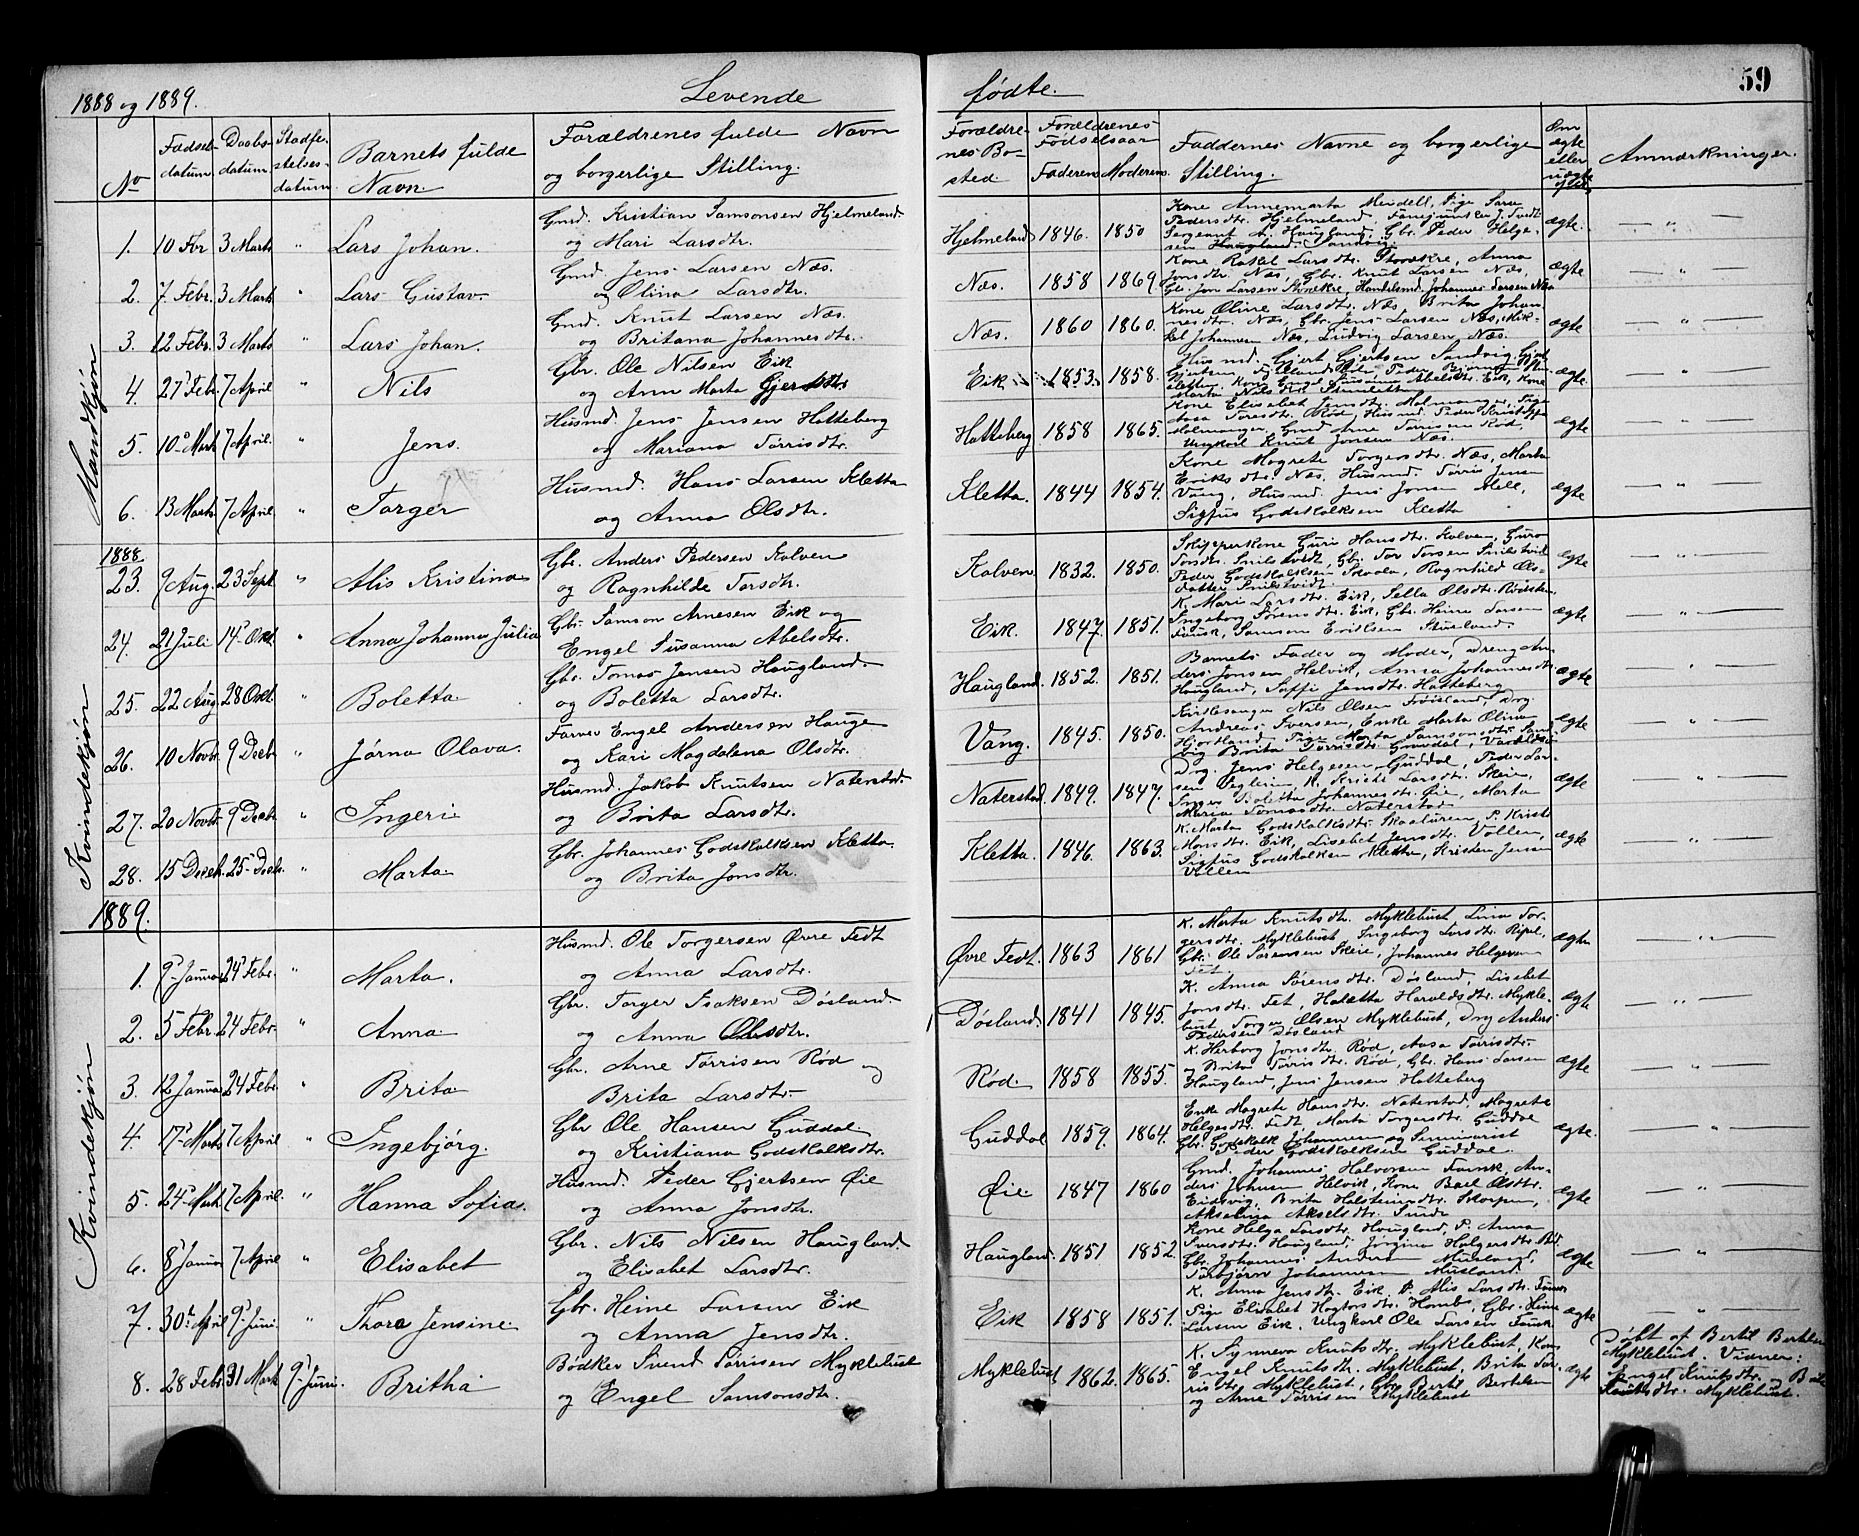 1888 og 1889. Levende fødte. 59
No Fødsels-datum. Daabs-datum. Stadfæ-stelses-datum. Barnets fulde Navn. Forældrenes fulde Navn og borgerlige Stilling. Forældre-nes Bo-sted. Forældrenes Fødselsaar Faderens Moderens. Faddernes Navne og borgerlige Stilling. Om ægte eller uægte Anmærkninger.
Mandkjøn
1. 10 Fbr 3 Marts " Lars Johan. Gmd. Kristian Samsonsen Hjelmeland
og Mari Larsdtr. Hjelmeland 1846. 1850 Kone Annemarta Meidell, Pige Sara
Pedersdtr. Hjelmeland,
Sergeant A. Haugland, Gbr. Peder Helge-
sen Sandvig. ægte. — " —
2. 7. Febr. 3 Marts " Lars Gustav. Gmd. Jens Larsen Næs.
og Olina Larsdtr. Næs. 1858 1869. Kone Rakel Larsdtr. Storækre, Anna
Jonsdtr. Næs, Gbr. Knut Larsen Næs,
Gbr. Jon Larsen Storækre, Handelsmd. Johannes Larsen Næs ægte — " —
3. 12 Febr. 3 Marts " Lars Johan. Gmd. Knut Larsen Næs.
og Britana Johannesdtr. Næs. 1860 1860. Kone Oline Larsdtr. Næs, Brita Johan-
nesdtr. Næs, Gbr. Jens Larsen Næs, Mik-
kel Johannesen Næs, Ludvig Larsen Næs. ægte — " —
4. 27 Febr. 7 April " Nils Gbr. Ole Nilsen Eik
og Ann Marta Gjertsdtr. Eik 1853. 1858. Husmd. Gjert Gjertsen Sandvig,
Gjertsen,
Kone Engel Susanna Abelsdtr. Eik, Kone
Marta Nilsdtr. ægte. — " —
5. 10 Mart. 7 April. " Jens. Husmd. Jens Jensen Hatteberg
og Mariana Tørrisdtr. Hatteberg 1858 1865. Kone Elisabet Jensdtr. Malmanger, Pige
Aasa Toresdtr. Rød, Husmd. Peder
Malmanger, Gmd Arne Tørrisen Rød,
Ungkarl Knut Jonsen Næs. ægte — " —
6. 13 Marts 7 April. " Torger Husmd. Hans Larsen Kletta
og Anna Olsdtr. Kletta. 1844 1854. Kone Magrete Torgersdtr. Næs, Marta
Eriksdtr. Næs, Husmd. Tørris Jensen
Vang, Husmd. Jens Jonsen Mele,
Sigfus Godskalksen Kletta ægte — " —
1888.
Kvindekjøn
23. 9 Aug. 23 Sept. " Alis Kristina Gbr. Anders Pedersen Kalven
og Ragnhilde Torsdtr. Kalven 1832. 1850. Skipperkone Guri Hansdtr. Kalven, Guro
Torsdtr. Snilstvedt, Gbr. Tor Torsen Snilstvedt
Peder Godskalksen Skaala, Ragnhild Ols-
datter Snilstvidt. ægte — " —
24. 21 Juli 14 Okt. " Anna Johanna Julia Gbr. Samson Arnesen Eik og
Engel Susanna Abelsdtr. Eik. 1847. 1851. K. Mari Larsdtr. Eik, Sella Olsdtr.
Ingeborg Sørensdtr. Eik, Gbr. Heine Larsen
Fausk, Samson Eriksen ægte — " —
25. 22 Aug. 28 Okt. " Boletta Gbr. Tomas Jensen Haugland.
og Boletta Larsdtr. Haugland. 1852. 1851. Barnets Fader og Moder, Dreng An-
ders Jonsen Helvik, Anna Johannesdtr.
Haugland, Soffi Jensdtr. Hatteberg ægte — " —
26. 10 Novbr. 9 Decbr. " Jørna Olava. Farver Engel Andersen Hauge
og Kari Magdalena Olsdtr. Vang. 1845. 1850. Kirkesanger Nils Olsen Frøisland, Drg
Andreas Iversen, Enke Marta Olina
Hjortland, Pige Marta Samsonsdtr. Sand-
vig Brita Tørrisdtr. ægte — " —
27. 20 Novbr. 9 Decbr. " Ingeri Husmd. Jakob Knutsen Naterstad.
og Brita Larsdtr. Naterstad. 1849. 1847. Drg. Jens Helgesen Guddal, Peder Lar-
sen K. Kristi Larsdtr. Skeie,
Inger Boletta Johannesdtr. Øie, Marta
Maria Tomasdtr. Naterstad ægte — " —
28. 15 Decbr. 25 Decbr. " Marta Gbr. Johannes Godskalksen Kletta.
og Brita Jonsdtr. Kletta. 1846. 1863. K. Marta Godskalksdtr. Skaaluren, P. Kristi
Hansdtr. Eik, Lisebet Jensdtr. Vollen,
Sigfus Godskalksen Kletta, Kristen Jensen
Vollen ægte — " —
1889.
Kvindekjøn
1. 9 Januar 24 Febr. " Marta. Husmd. Ole Torgersen Øvre Fedt
og Anna Larsdtr. Øvre Fedt. 1863 1861 K. Marta Knutsdtr. Myklebust, Lina Tor-
gersdtr. Myklebust Ingeborg Larsdtr. Ripel,
Gbr. Ole Sørensen Skeie, Johannes Helgesen
Fet ægte — " —
2. 5 Febr. 24 Febr. " Anna Gbr. Torger Isaksen Døsland.
og Anna Olesdtr. Døsland 1841 1845. K. Anna Sørensdtr. Døsland, Lisebet
Jonsdtr. Fet, Haletta Haraldsdtr. Mykle-
bust Torger Olsen Myklebust, Drg Anders
Pedersen Døsland ægte — " —
3. 12 Januar 24 Febr. " Brita Gbr. Arne Tørrisen Rød og
Brita Larsdtr. Rød. 1858 1855. K. Herborg Jonsdtr. Rød, Aasa Tørrisdtr.
og Brita Tørrisdtr. Rød, Gbr. Hans Larsen
Haugland, Jens Jensen Hatteberg ægte — " —
4. 17 Marts 7 April " Ingebjørg. Gbr Ole Hansen Guddal
og Kristiana Godskalksdtr. Guddal 1859. 1864. Enke Magrete Hansdtr. Naterstad, Magrete
Helgesdtr. Fedt Marta Torgersdtr. Guddal
Gbr. Godskalk Johannesen og Seminarist
Peder Godskalksen Guddal. ægte. — " —
5. 24 Mart. 7 April. " Hanna Sofia. Husmd. Peder Gjertsen Øie
og Anna Jonsdtr. Øie 1847 1860 Gmd. Johannes Halvorsen Fausk, An-
ders Johnsen Helvik, Kone Boel Olsdtr.
Eidsvig, Brita Halsteinsdtr. Skorpen,
Akselina Akselsdtr. Sunde ægte — " —
6. 8 Januar 7 April " Elisabet Gbr. Nils Nilsen Haugland.
og Elisabet Larsdtr. Haugland. 1851 1852. Kone Helga Larsdtr. Haugland, P. Anna
Iversdtr. Haugland, Jørgina Halgersdtr.
Gbr. Johannes Anders. Musland,
Torbjørn Johannesen Musland. ægte — " —
7. 30 April 9 Juni. " Thora Jensine. Gbr. Heine Larsen Eik
og Anna Jensdtr. Eik 1858 1851. K. Anna Jensdtr. Eik, P. Alis Larsdtr. Fausk
Pige Elisabet Hogtorsdtr. Homb, Gbr. Heine
Larsen Eik, Ungkarl Ole Larsen Fausk ægte — " —
8. 28 Febr. 31 Mart. 9 Juni. Britha Bødker Svend Tørrisen Myklebust
og Engel Samsonsdtr. Myklebust 1862. 1865. K. Synneva Knutsdtr. Myklebust, Kone
Engel Knutsdtr. Myklebust, Brita Tør-
risdtr. Myklebust, Gbr. Bertil Bertilsen
og Arne Tørrisen Myklebust ægte Døbt af Bertil Bertilsen
Myklebust. Vidner:
Engel Knutsdtr. og Brita
Knutsdtr. Myklebust.